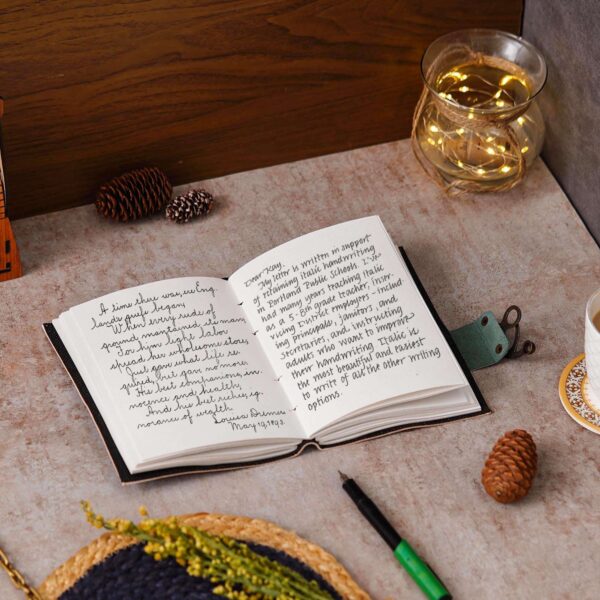 A time there was, ere Eng
lands griefs began,
When every rood of
ground maintained its man,
For him light labor
spread her wholesome store,
Just gave what life re
quired, but gave no more.
His best companions, in
nocence and health,
And his best riches, ig-
norance of wealth.
Louisa
May 19, 1893.
Dear Kay,
My letter is written in support
of returning italic handwriting
in Portland Public Schools. I've
had many years teaching italic
as a 5-8th grade teacher, inser-
vicing District employers - includ
ing principals, janitors, and
secretaries, and instructing
adults who want to improve
their handwriting. Italic is
the most beautiful and easiest
to write of all the other writing
options.